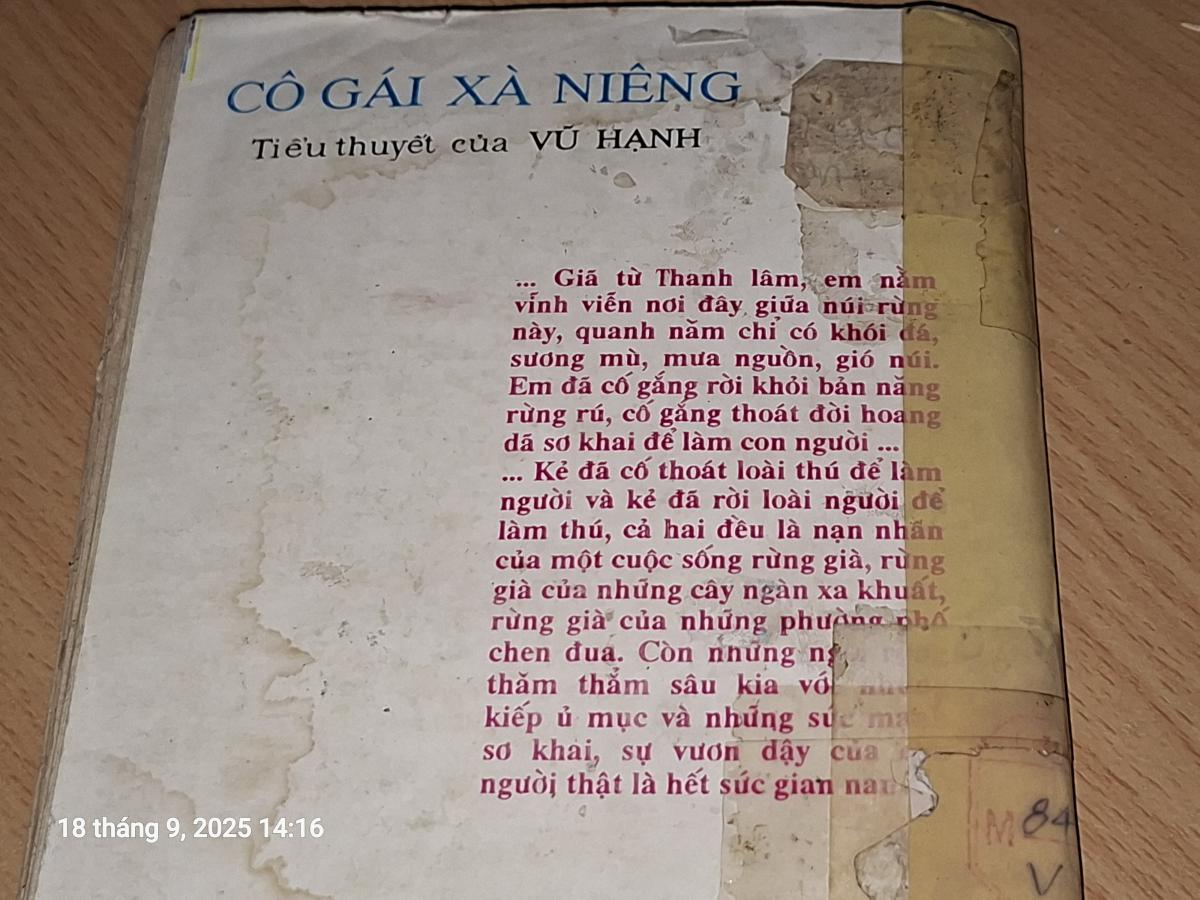 CÔ GÁI XÀ NIÊNG
Tiểu thuyết của VŨ HẠNH
... Giã từ Thanh lâm, em nằm
vĩnh viễn nơi đây giữa núi rừng
này, quanh năm chỉ có khói đá,
sương mù, mưa nguồn, gió núi.
Em đã cố gắng rời khỏi bản năng
rừng rú, cố gắng thoát đời hoang
dã sơ khai để làm con người ...
... Kẻ đã cố thoát loài thú để làm
người và kẻ đã rời loài người để
làm thú, cả hai đều là nạn nhân
của một cuộc sống rừng già, rừng
già của những cây ngàn xa khuất,
rừng già của những phường phố
chen đua. Còn những
thăm thẳm sâu kia
kiếp ủ mục và những sức
sơ khai, sự vươn dậy của
người thật là hết sức gian
M 84
V
18 tháng 9, 2025 14:16